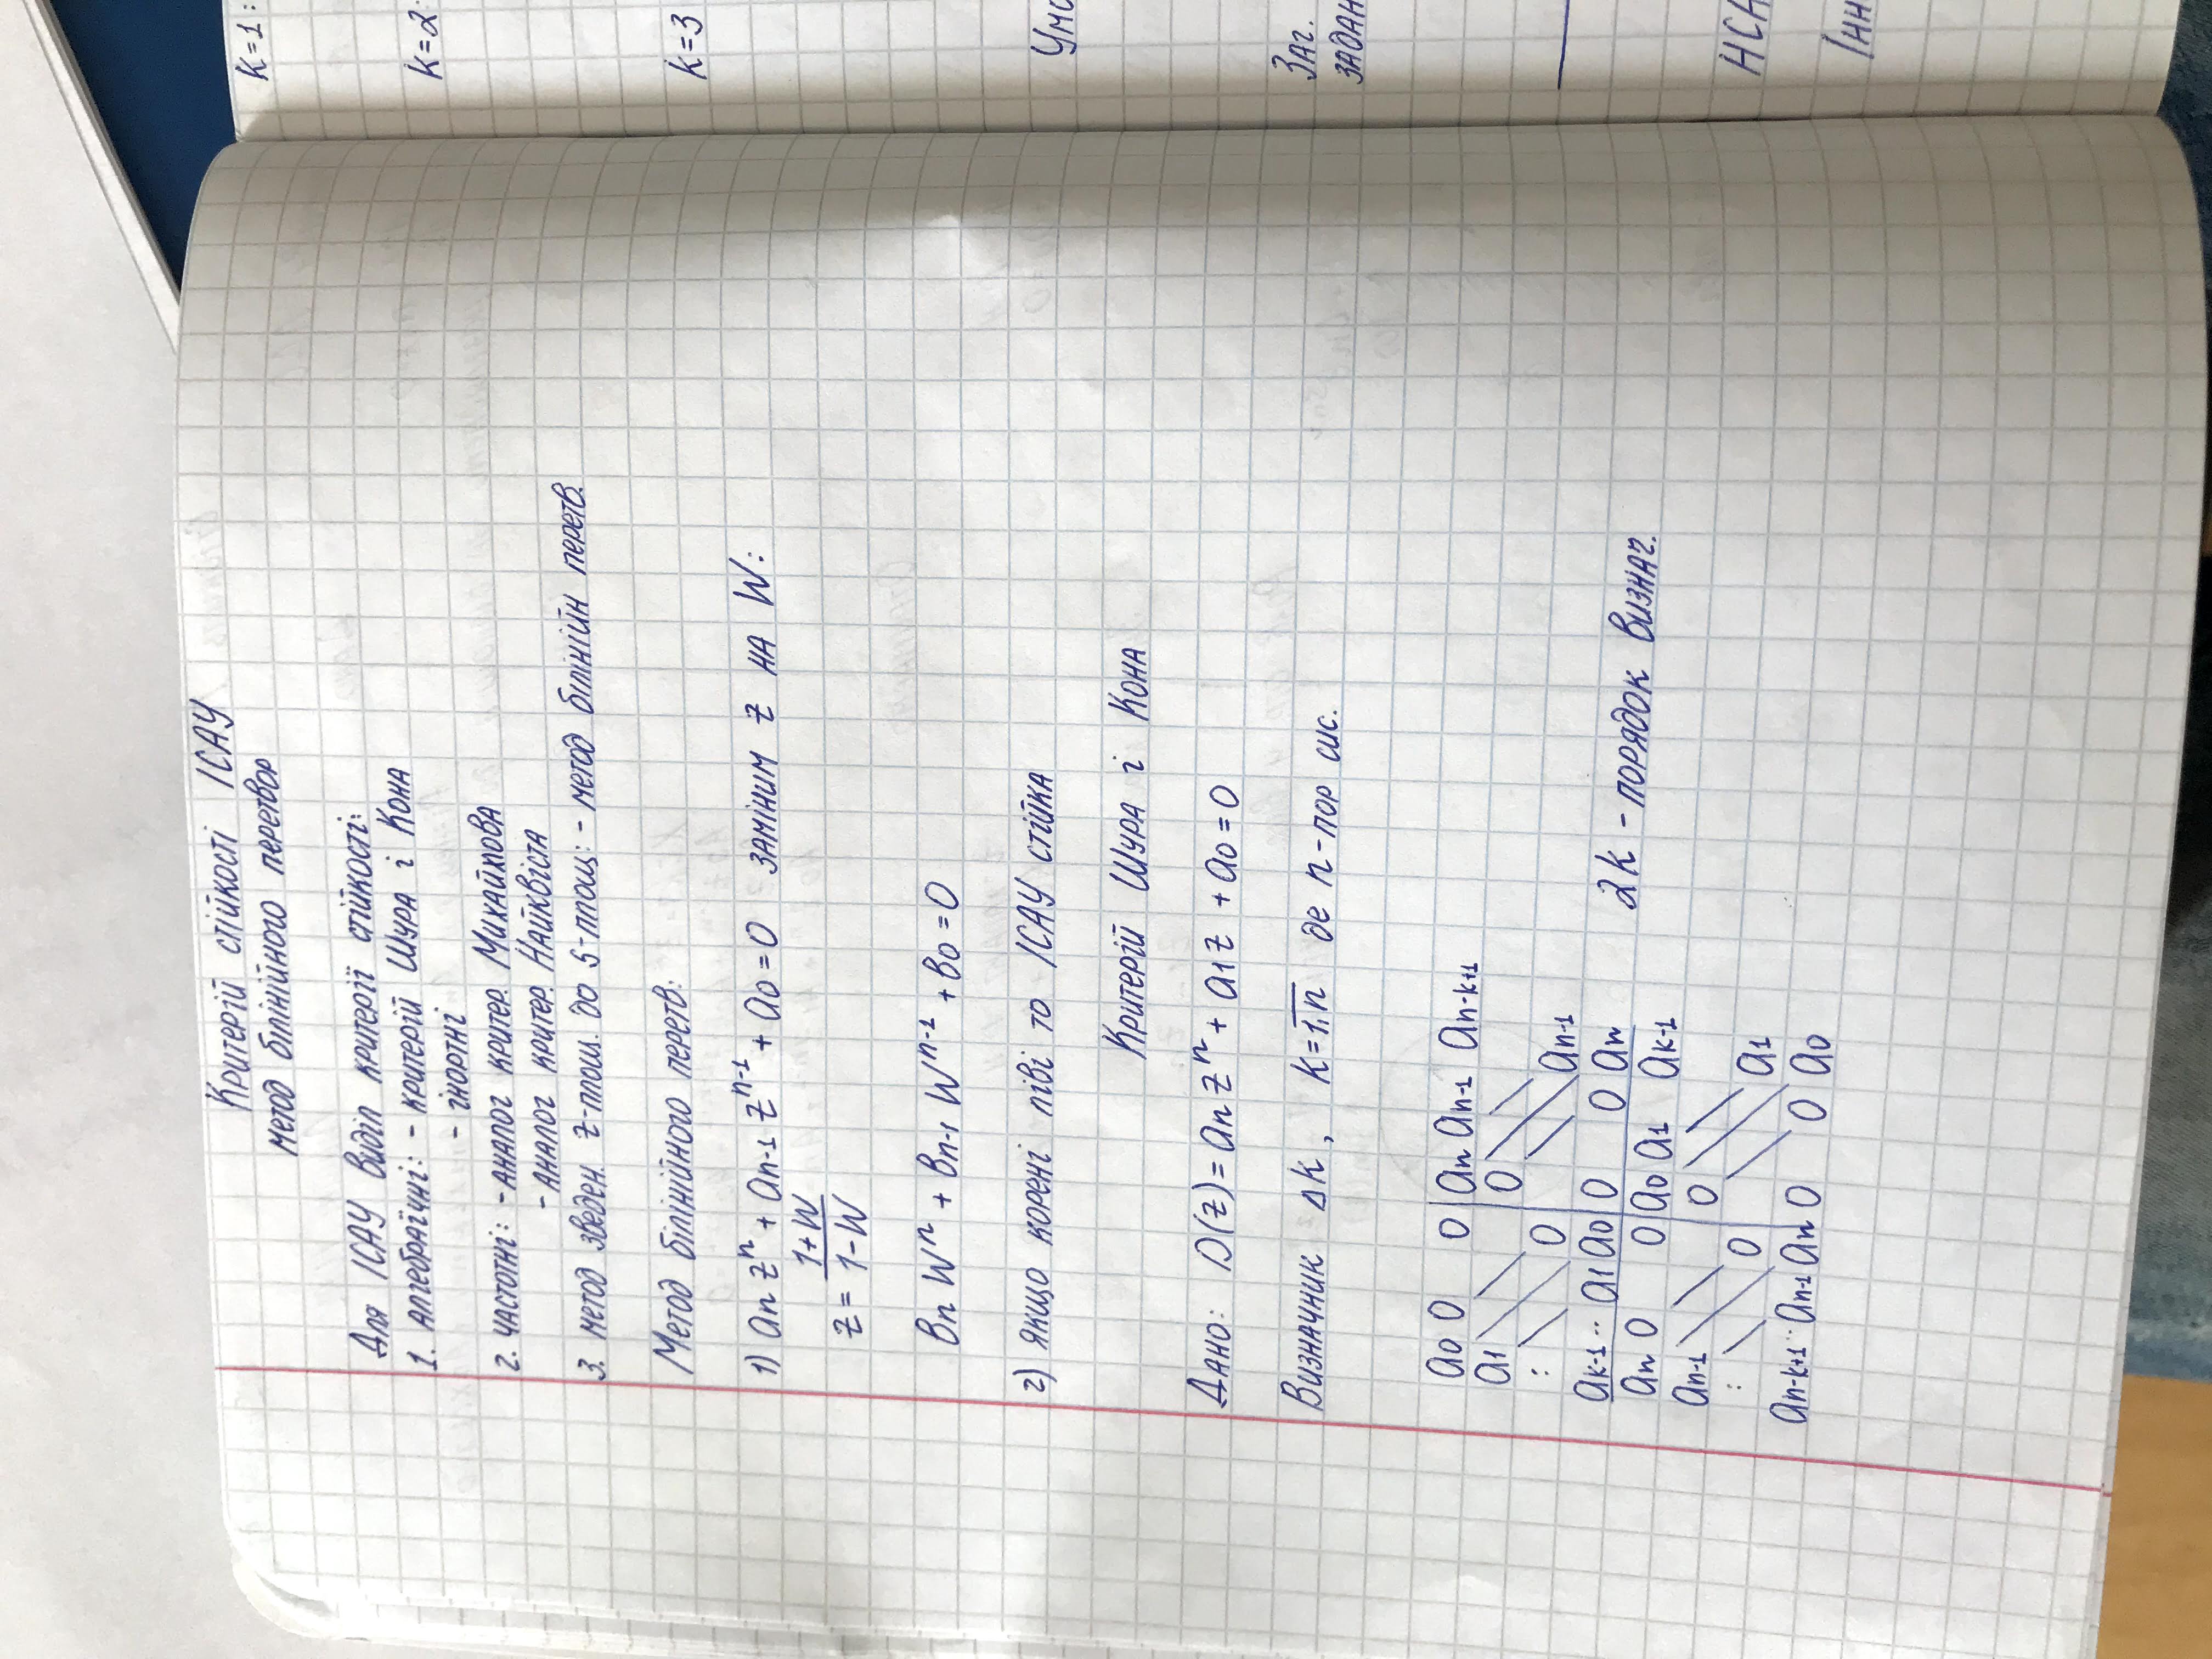 Критерій стійкості ІСАУ
метод білінійного перетвор
Для ІСАУ виділ критерії стійкості:
1. алгебраїчні: - критерій Шура і Кона
- інортні
2. частотні: - аналог критер. Михайлова
- аналог критер. Найквіста
3. метод зведен. z-площ. до s-площ: - метод білінійн перетв.
Метод білінійного перетв:
1) an z^n + an-1 z^n-1 + a0 = 0 заміним z на W:
z = (1+W)/(1-W)
вn W^n + вn-1 W^n-1 + в0 = 0
2) якщо корені ліві то ІСАУ стійка
Критерій Шура і Кона
Дано: D(z) = an z^n + a1 z + a0 = 0
Визначник Δk, k = 1,n де n-пор сис.
a0 0 0 | an an-1 an-k+1
a1 \ \ 0 \ \
: \ \ 0 \ \ an-1
ak-1 .. a1 a0 | 0 0 an
2k - порядок визнач.
an 0 0 | a0 a1 ak-1
an-1 \ \ 0 \ \
: \ \ 0 \ \ a1
an-k+1 .. an-1 an 0 0 a0
K=1:
K=2:
K=3
Умо
Заг.
задан
НСА
Інн